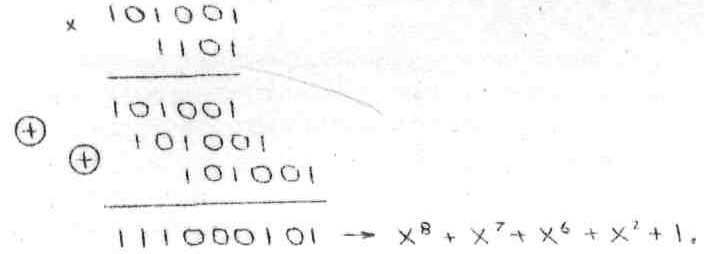 × 101001
1101
101001
⊕ 101001
⊕ 101001
111000101 → x⁸ + x⁷ + x⁶ + x² + 1.